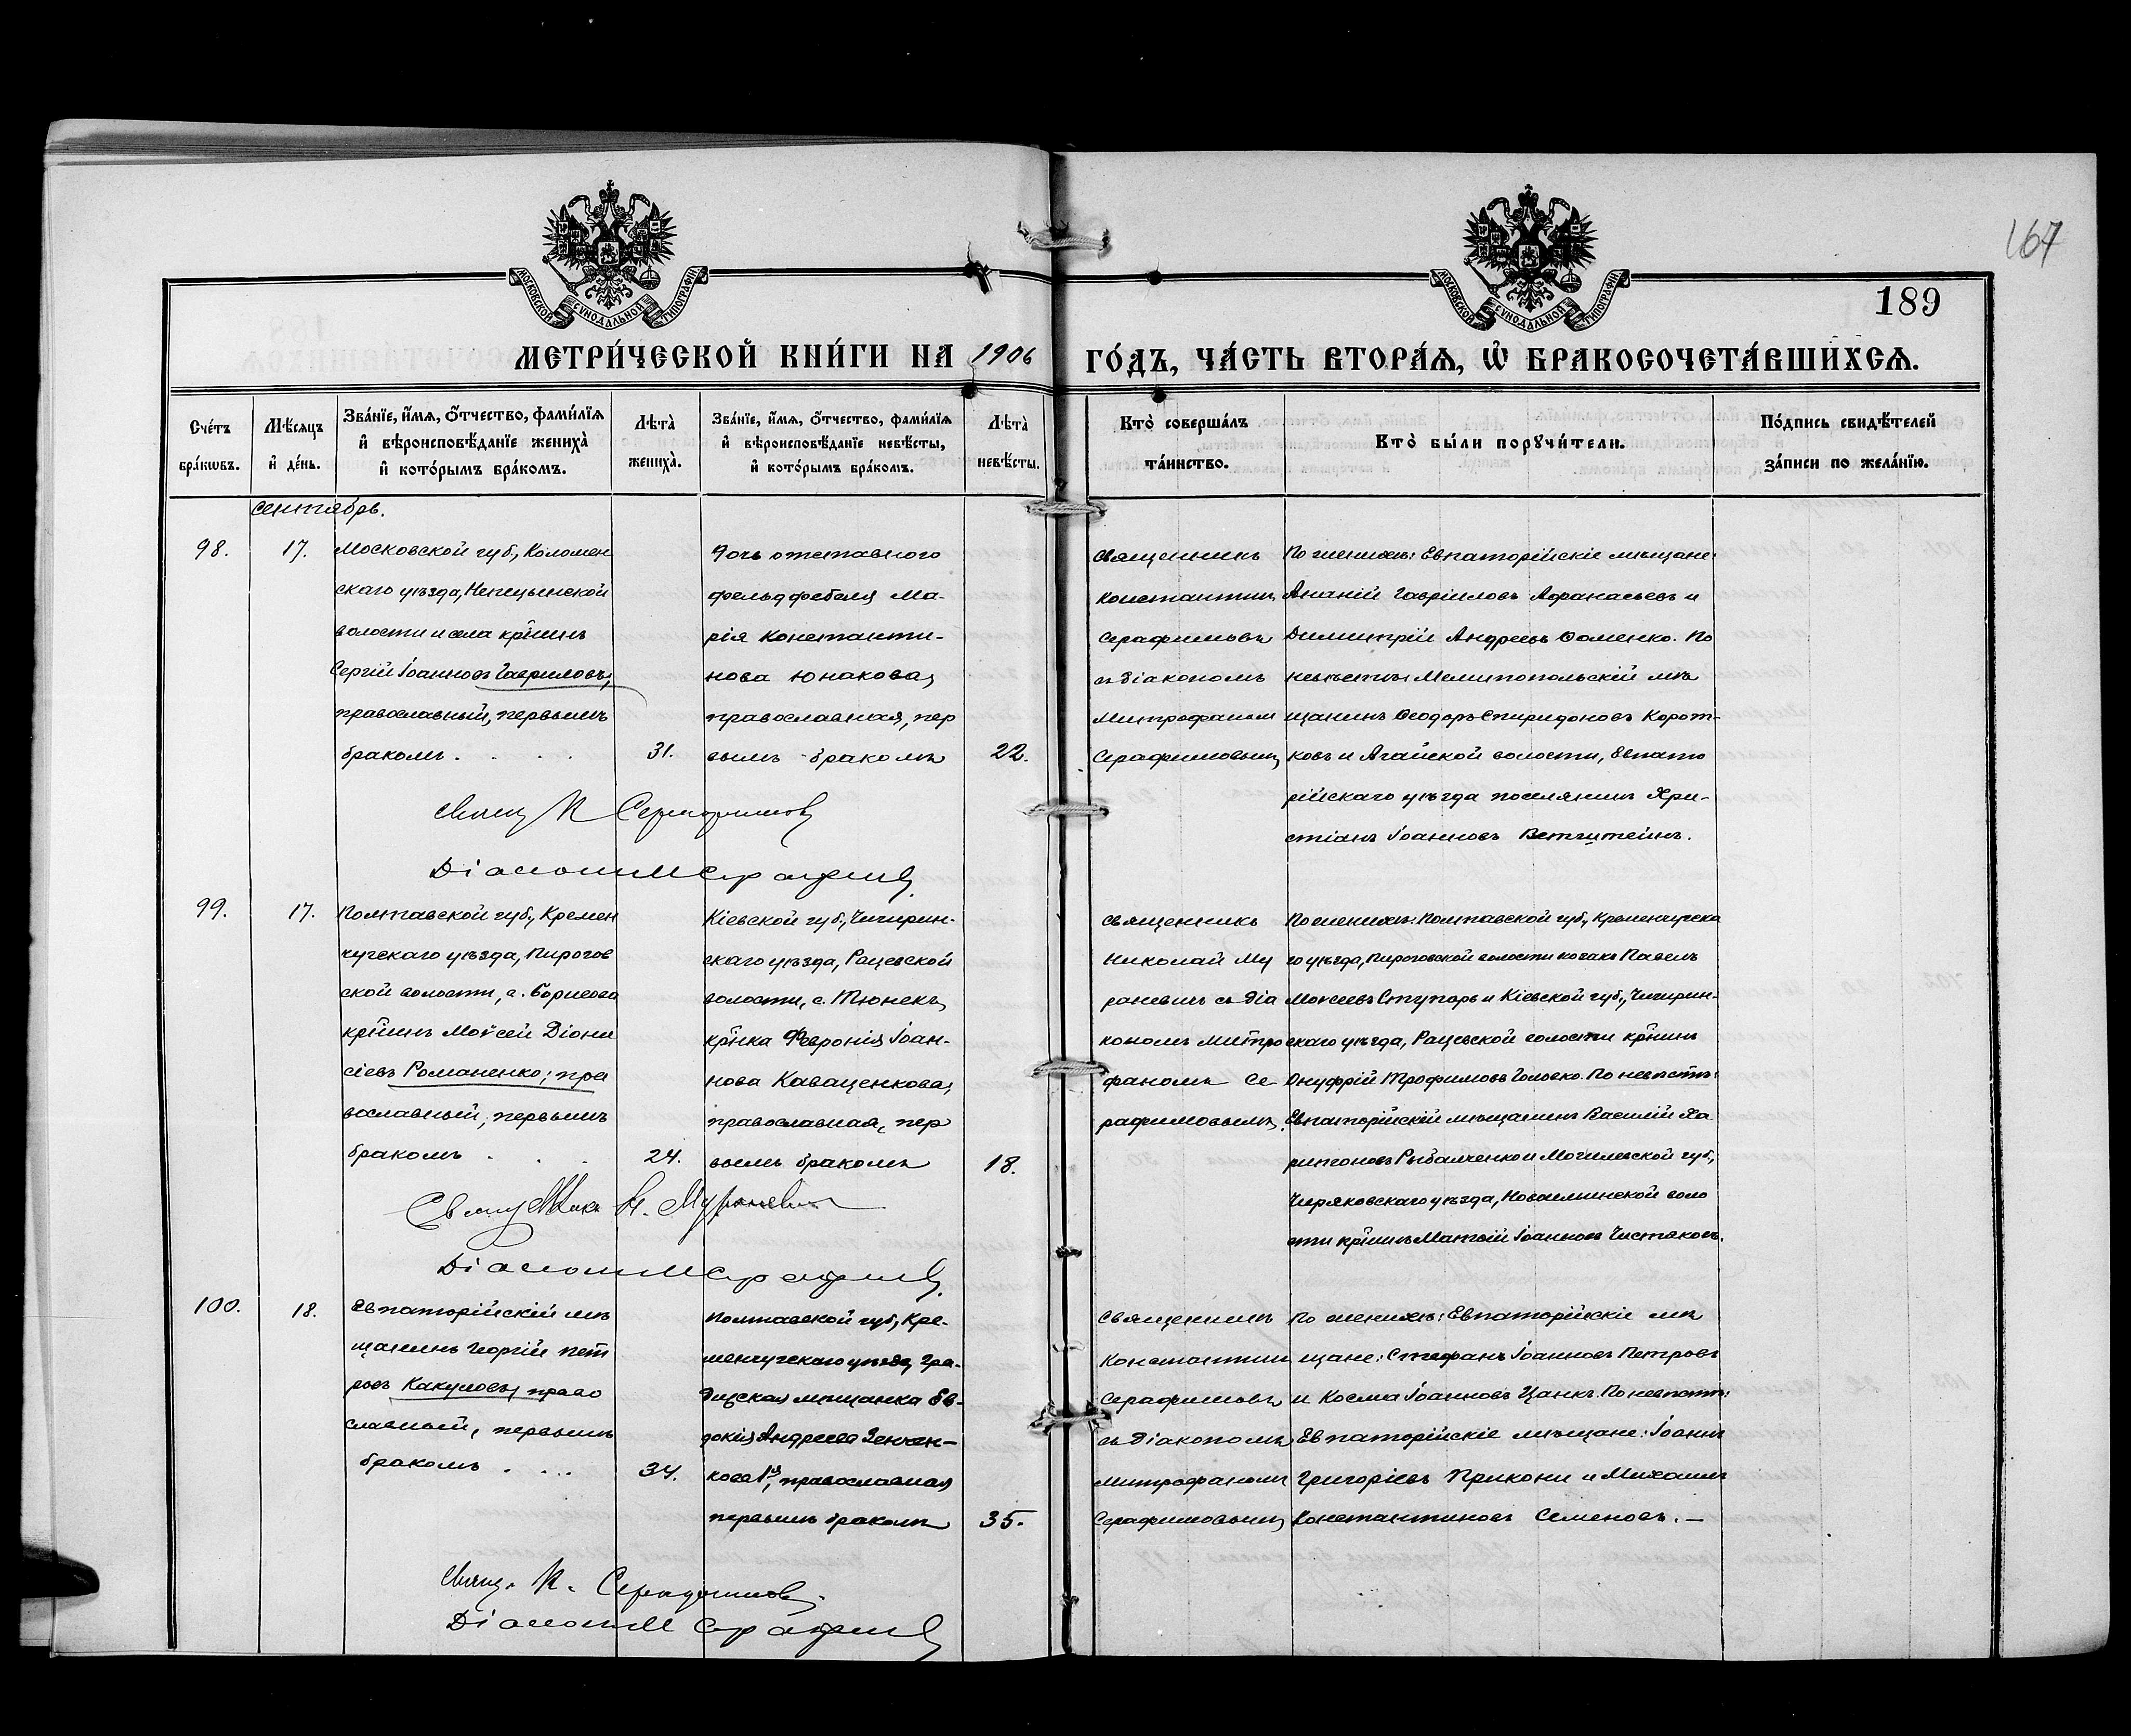 167
189
МОСКОВСКОЙ СѴНОДАЛЬНОЙ ТИПОГРАФІИ
МОСКОВСКОЙ СѴНОДАЛЬНОЙ ТИПОГРАФІИ
МЕТРИ́ЧЕСКОЙ КНИ́ГИ НА 1906 ГО́ДЪ, ЧА́СТЬ ВТОРА́Я, Ѽ БРАКОСОЧЕТА́ВШИХСЯ.
Сче́тъ бра́кѡвъ.
Мѣ́сяцъ и҆ де́нь.
Зва́нїе, и҆́мя, ѻ҆́тчество, фами́лїя
и҆ вѣроисповѣ́данїе жениха̀
и҆ кото́рымъ бра́комъ.
Лѣта̀ жениха̀.
Зва́нїе, и҆́мя, ѻ҆́тчество, фами́лїя
и҆ вѣроисповѣ́данїе невѣ́сты,
и҆ кото́рымъ бра́комъ.
Лѣта̀ невѣ́сты.
Кто̀ соверша́лъ
та́инство.
Кто̀ бы́ли порꙋчи́тели.
По́дпись свидѣ́телей
за́писи по жела́нїю.
сентябрь.
98.
17.
Московской губ., Коломен
скаго уѣзда, Непецынской
волости и села кр̃нинъ
Сергій Іоанновъ Гавриловъ,
православный, первымъ
бракомъ . . . .
31.
Дочь отставного
фельдфебеля Ма-
рія Константи-
нова Юнакова,
православная, пер
вымъ бракомъ
22.
Священникъ
Константинъ
Серафимовъ
съ діакономъ
Митрофаномъ
Серафимовымъ
По женихѣ: Евпаторійскіе мѣщане:
Ананій Гавріиловъ Афанасьевъ и
Димитрій Андреевъ Фоменко. По
невѣстѣ: Мелитопольскій мѣ
щанинъ Ѳеодоръ Спиридоновъ Корот-
ковъ и Агайской волости, Евпато
рійскаго уѣзда поселянинъ Хри-
стіанъ Іоанновъ Ветштейнъ.
Свящ К Серафимовъ
Діаконъ М Серафимовъ
99.
17.
Полтавской губ., Кремен
чугскаго уѣзда, Пирогов
ской волости, с. Борисова
кр̃нинъ Моѵсей Діони
сіевъ Романенко; пра
вославный, первымъ
бракомъ . . .
24.
Кіевской губ., Чигирин-
скаго уѣзда, Рацевской
волости, с. Тюнекъ,
кр̃нка Февронія Іоан-
нова Каваценкова,
православная, пер
вымъ бракомъ
18.
Священникъ
Николай Му
раневичъ съ діа
кономъ Митро
фаномъ Се
рафимовымъ.
По женихѣ: Полтавской губ., Кременчугска
го уѣзда, Пироговской волости козакъ Павелъ
Моѵсеевъ Ступарь и Кіевской губ., Чигирин-
скаго уѣзда, Рацевской волости кр̃нинъ
Онуфрій Трофимовъ Головко. По невѣстѣ:
Евпаторійскій мѣщанинъ Василій Ха
ритоновъ Рыбалченко и Могилевской губ.,
Чериковскаго уѣзда, Новоельнской воло
сти кр̃нинъ Матѳій Іоанновъ Чистяковъ.
Свящ Н. Мураневичъ
Діаконъ М Серафимовъ
100.
18.
Евпаторійскій мѣ
щанинъ Георгій Пет
ровъ Какуловъ, право
славный, первымъ
бракомъ . . . .
34.
Полтавской губ., Кре-
менчугскаго уѣзда, Гра-
дизская мѣщанка Ев-
докія Андреева Зенчен-
кова 1я, православная
первымъ бракомъ
35.
Священникъ
Константинъ
Серафимовъ
съ діакономъ
Митрофаномъ
Серафимовымъ
По женихѣ: Евпаторійскіе мѣ
щане: Стефанъ Іоанновъ Петровъ
и Косма Іоанновъ Цанкъ. По невѣстѣ:
Евпаторійскіе мѣщане: Іоаннъ
Григоріевъ Прикони и Михаилъ
Константиновъ Семеновъ. —
Свящ. К. Серафимовъ.
Діаконъ М Серафимовъ